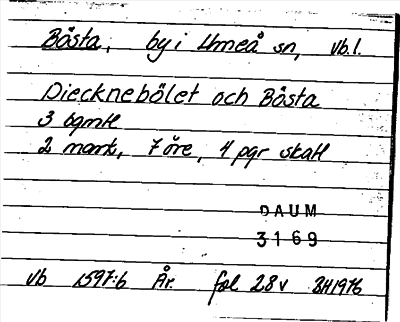 Bösta, by i Umeå sn, Vb.l.
Diecknebölet och Bösta
3 bqmtl
2 mark, 7 öre, 4 pgr skatt
DAUM
3169
Vb 1597:6 År. fol 28v BH1976